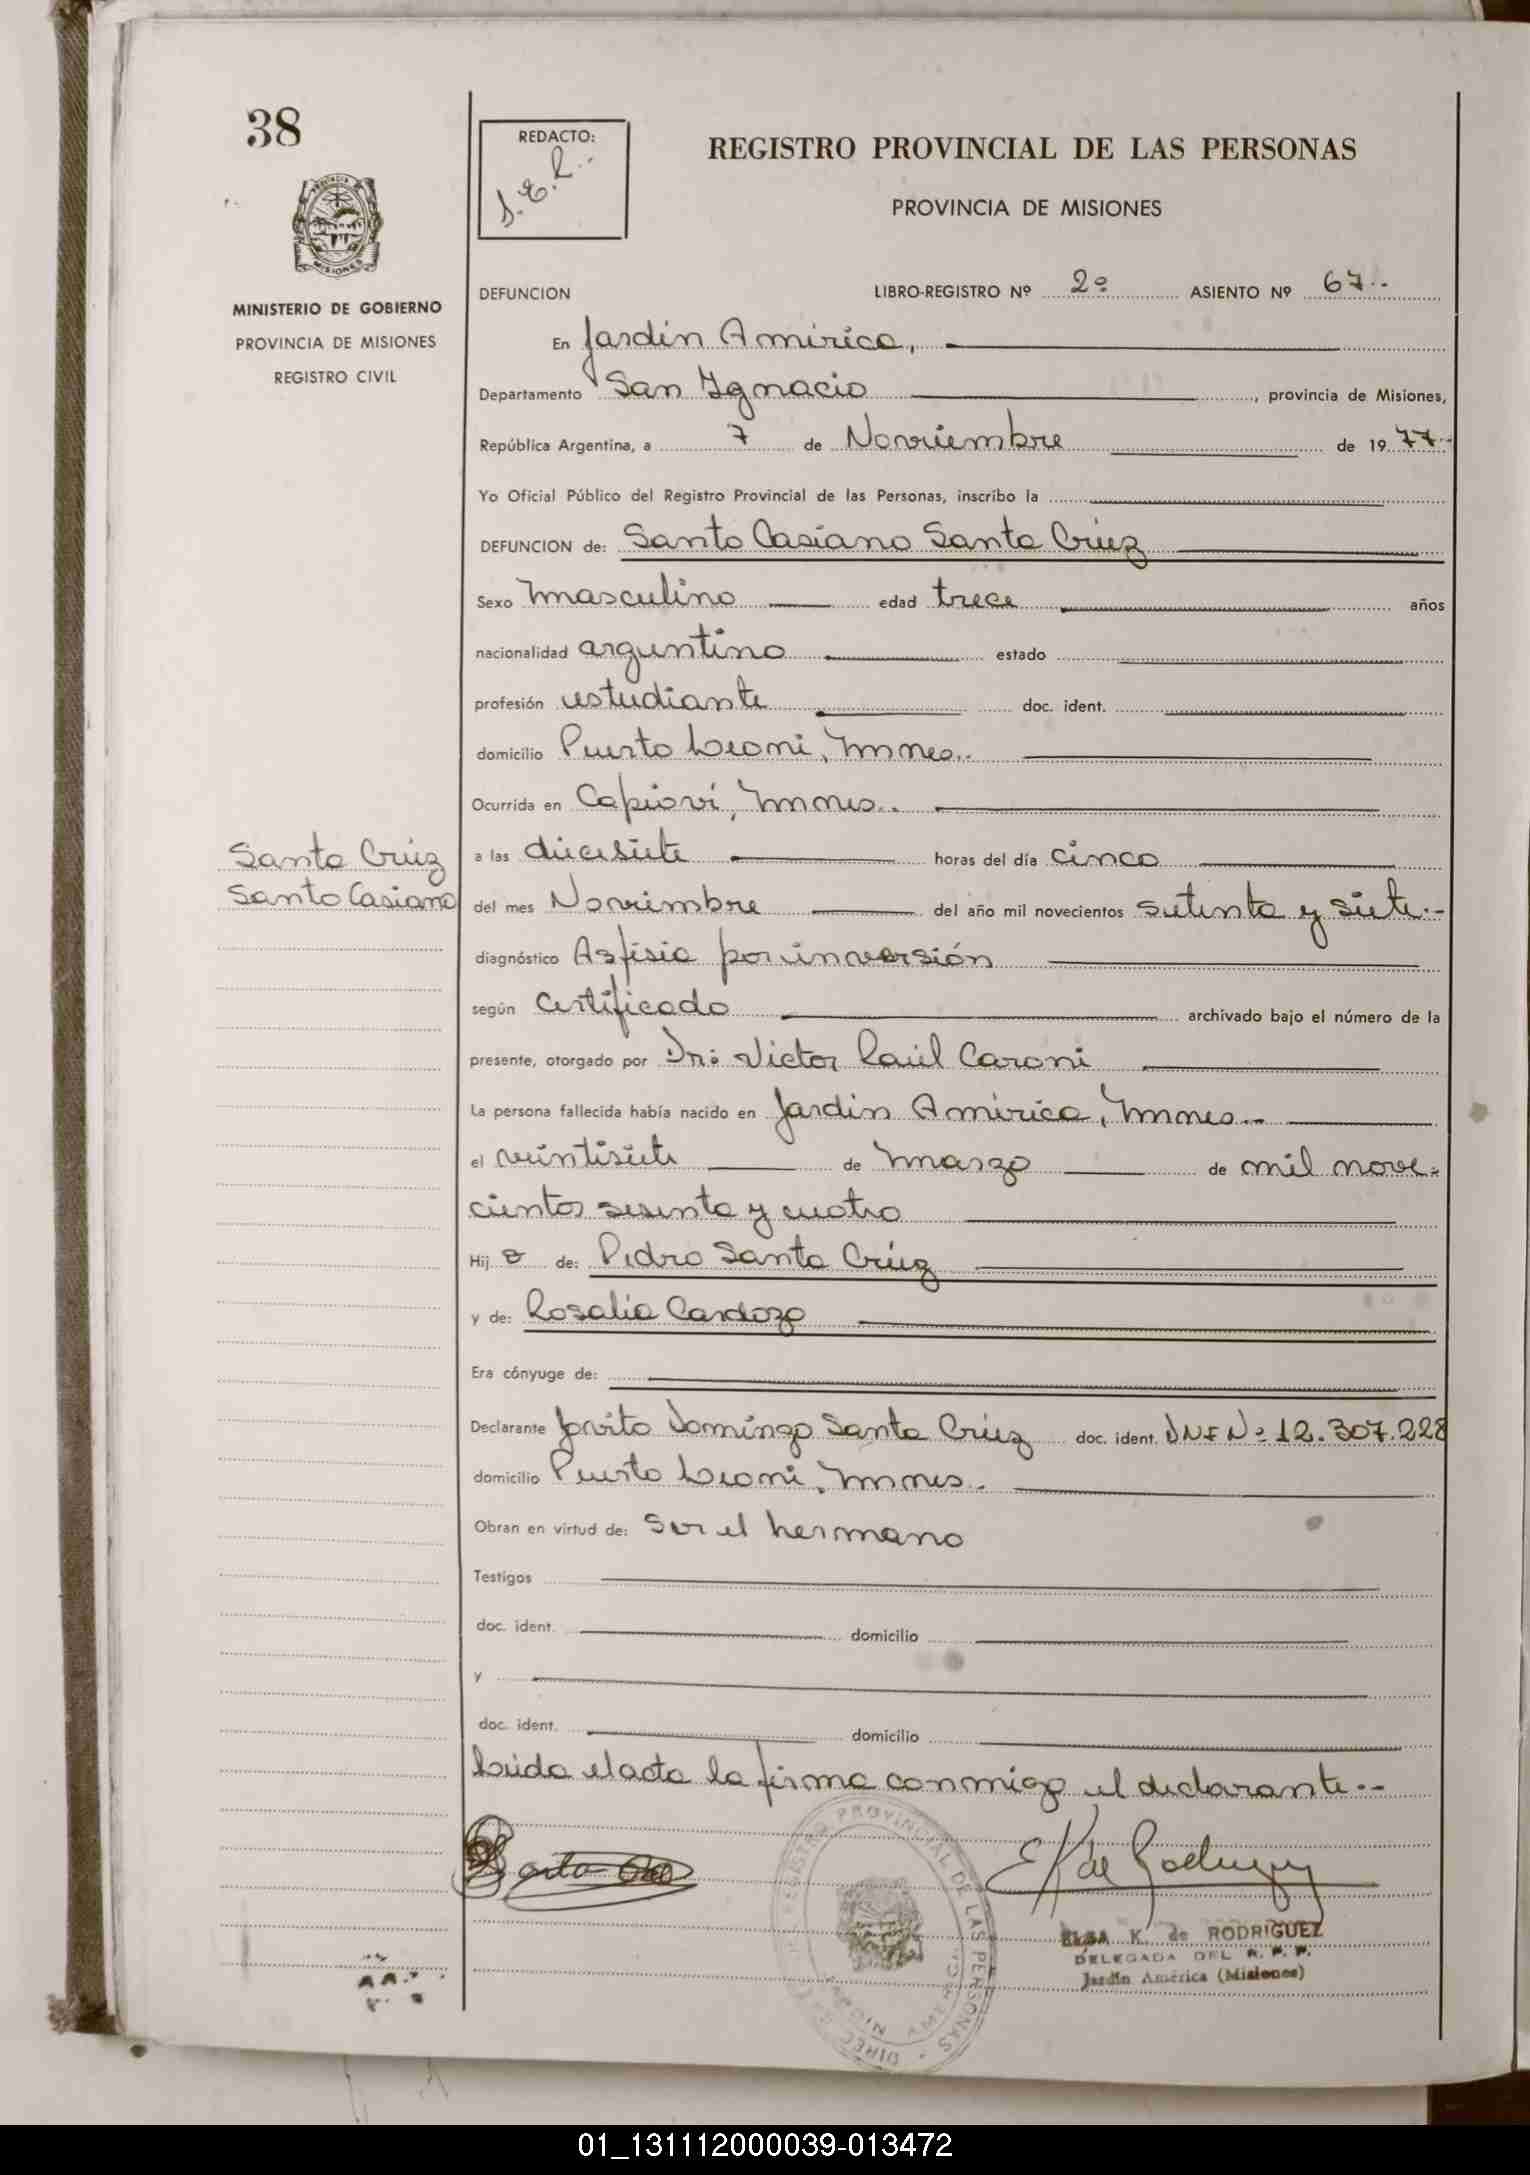 38
REDACTO:
J.E.R..
REGISTRO PROVINCIAL DE LAS PERSONAS
PROVINCIA DE MISIONES
MISIONES
MINISTERIO DE GOBIERNO
PROVINCIA DE MISIONES
REGISTRO CIVIL
DEFUNCION LIBRO-REGISTRO Nº 2º ASIENTO Nº 67..
En Jardín América,
Departamento San Ignacio, provincia de Misiones,
República Argentina, a 7 de Noviembre de 1977..
Yo Oficial Público del Registro Provincial de las Personas, inscribo la
DEFUNCION de: Santo Casiano Santa Crúz
Sexo masculino edad trece años
nacionalidad argentino estado
profesión estudiante doc. ident.
domicilio Puerto Leoni, Mnes..
Ocurrida en Capioví, Mnes..
Santa Crúz
Santo Casiano
a las diecisiete horas del día cinco
del mes Noviembre del año mil novecientos setenta y siete.-
diagnóstico Asfisia por inversión
según certificado archivado bajo el número de la
presente, otorgado por Dr: Victor Raúl Caroni
La persona fallecida había nacido en Jardín América, Mnes..
el veintisiete de marzo de mil nove-
cientos sesenta y cuatro
Hij o de: Pedro Santa Crúz
y de: Rosalia Cardozo
Era cónyuge de:
Declarante Jovito Domingo Santa Crúz doc. ident. DNI Nº 12.307.228
domicilio Puerto Leoni, Mnes..
Obran en virtud de: Ser el hermano
Testigos
doc. ident. domicilio
y
doc. ident. domicilio
Leída el acta la firma conmigo el declarante..
E K de Rodriguez
DIREC REGISTRO PROVINCIAL DE LAS PERSONAS
JARDIN AMERICA
ELSA K. de RODRIGUEZ
DELEGADA DEL R. P. P.
Jardín América (Misiones)
01_131112000039-013472